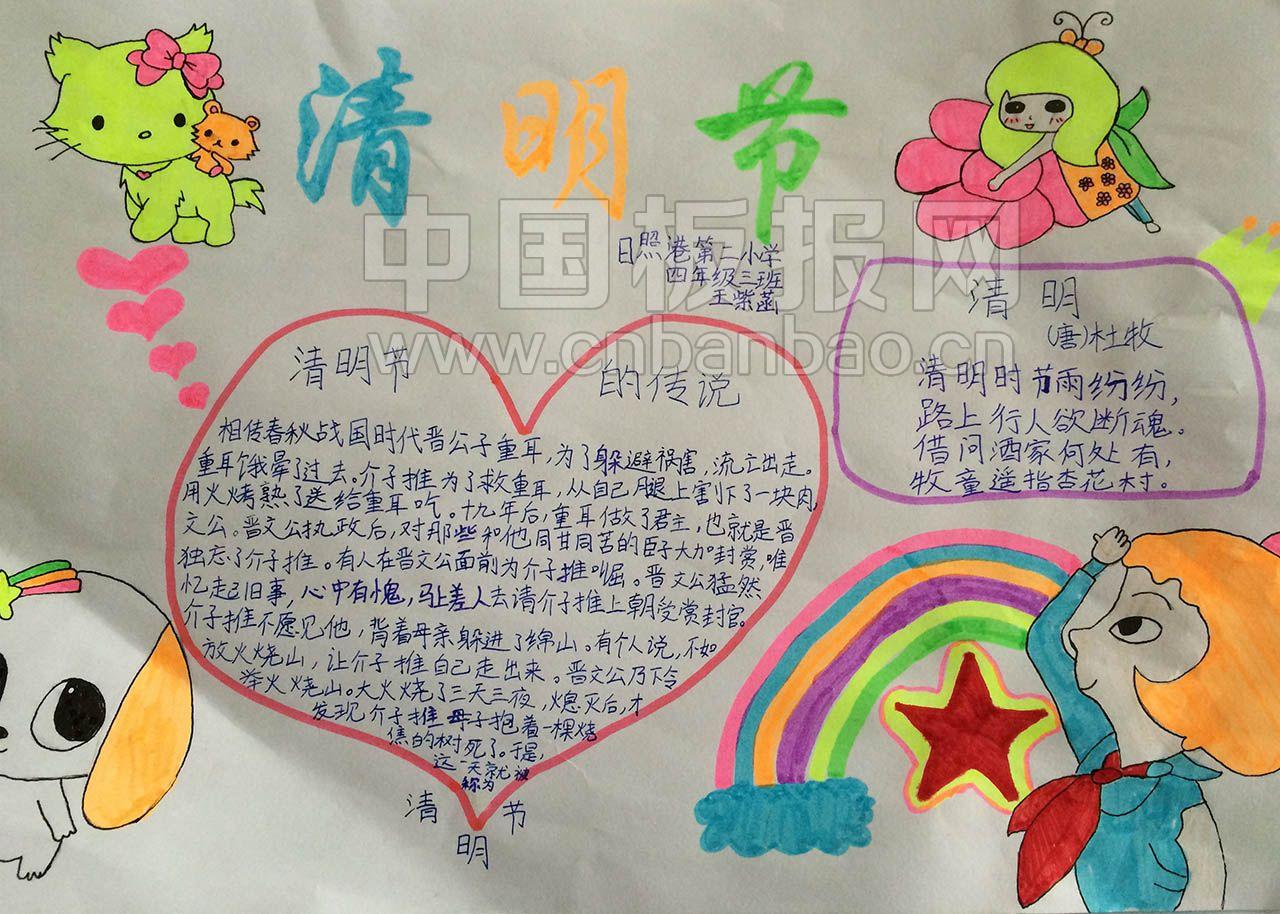 清明节
日照港第二小学
四年级三班
王紫菡
中国板报网
www.cnbanbao.cn
清明节的传说
相传春秋战国时代晋公子重耳，为了躲避祸害，流亡出走。
重耳饿晕了过去。介子推为了救重耳，从自己腿上害下了一块肉，
用火烤熟了送给重耳吃。十九年后，重耳做了君主，也就是晋
文公。晋文公执政后，对那些和他同甘同苦的臣子大加封赏，唯
独忘了介子推。有人在晋文公面前为介子推叫屈。晋文公猛然
忆起旧事，心中有愧，马上差人去请介子推上朝受赏封官。
介子推不愿见他，背着母亲躲进了绵山。有个人说，不如
放火烧山，让介子推自己走出来。晋文公乃下令
举火烧山。大火烧了三天三夜，熄灭后，才
发现介子推母子抱着一棵烧
焦的树死了。于是，
这一天就被
称为
清明节
清明
(唐)杜牧
清明时节雨纷纷，
路上行人欲断魂。
借问酒家何处有，
牧童遥指杏花村。